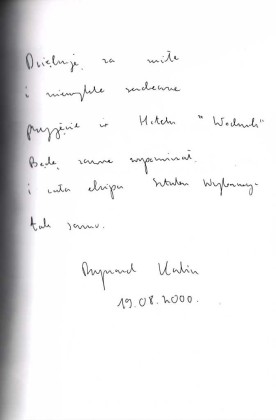 Dziękuję za miłe
i niezwykle serdeczne
przyjęcie w Hotelu "Wodnik"
Będę zawsze wspominał.
i cała ekipa Sztabu Wyborczego
tak samo.
Ryszard Kalisz
19.08.2000.